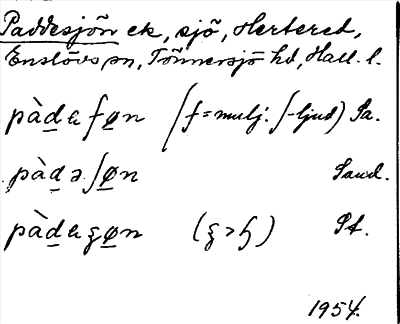 Paddesjön ek, sjö, Hertered,
Enslövs sn, Tönnersjö hd, Hall. l.
pàdaʃøn (ʃ = mulj. ʃ-ljud) Sa.
pàdə.ʃøn Sand.
pàdaʒøn ( > ) St.
1954.